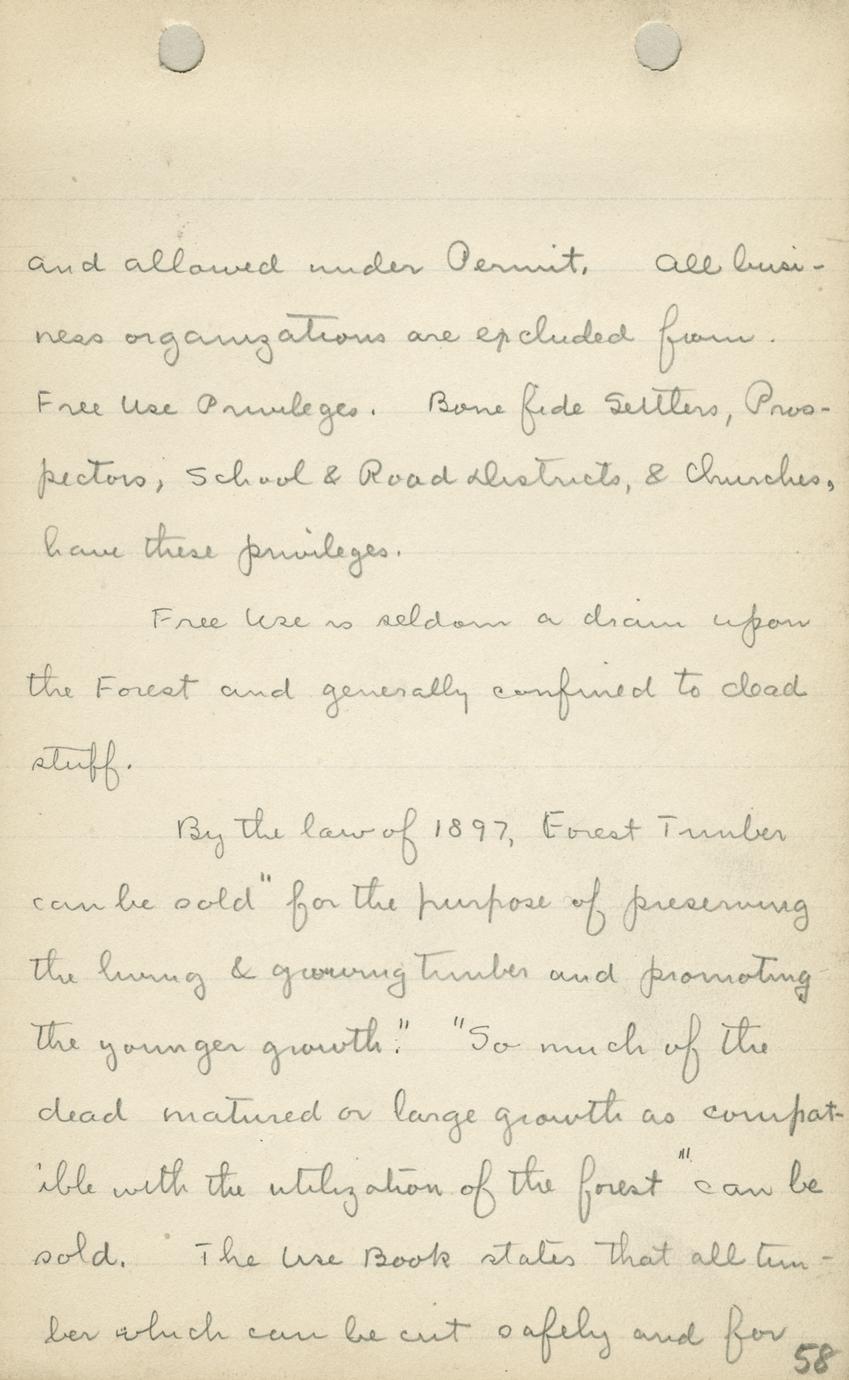 and allowed under Permit. All busi-
ness organizations are excluded from.
Free Use Privileges. Bone fide Settlers, Pros-
pectors, School & Road Districts, & Churches,
have these privileges.
Free Use is seldom a drain upon
the Forest and generally confined to dead
stuff.
By the law of 1897, Forest Timber
can be sold "for the purpose of preserving
the living & growing timber and promoting
the younger growth." "So much of the
dead matured or large growth as compat-
ible with the utilization of the forest" can be
sold. The Use Book states that all tim-
ber which can be cut safely and for
58